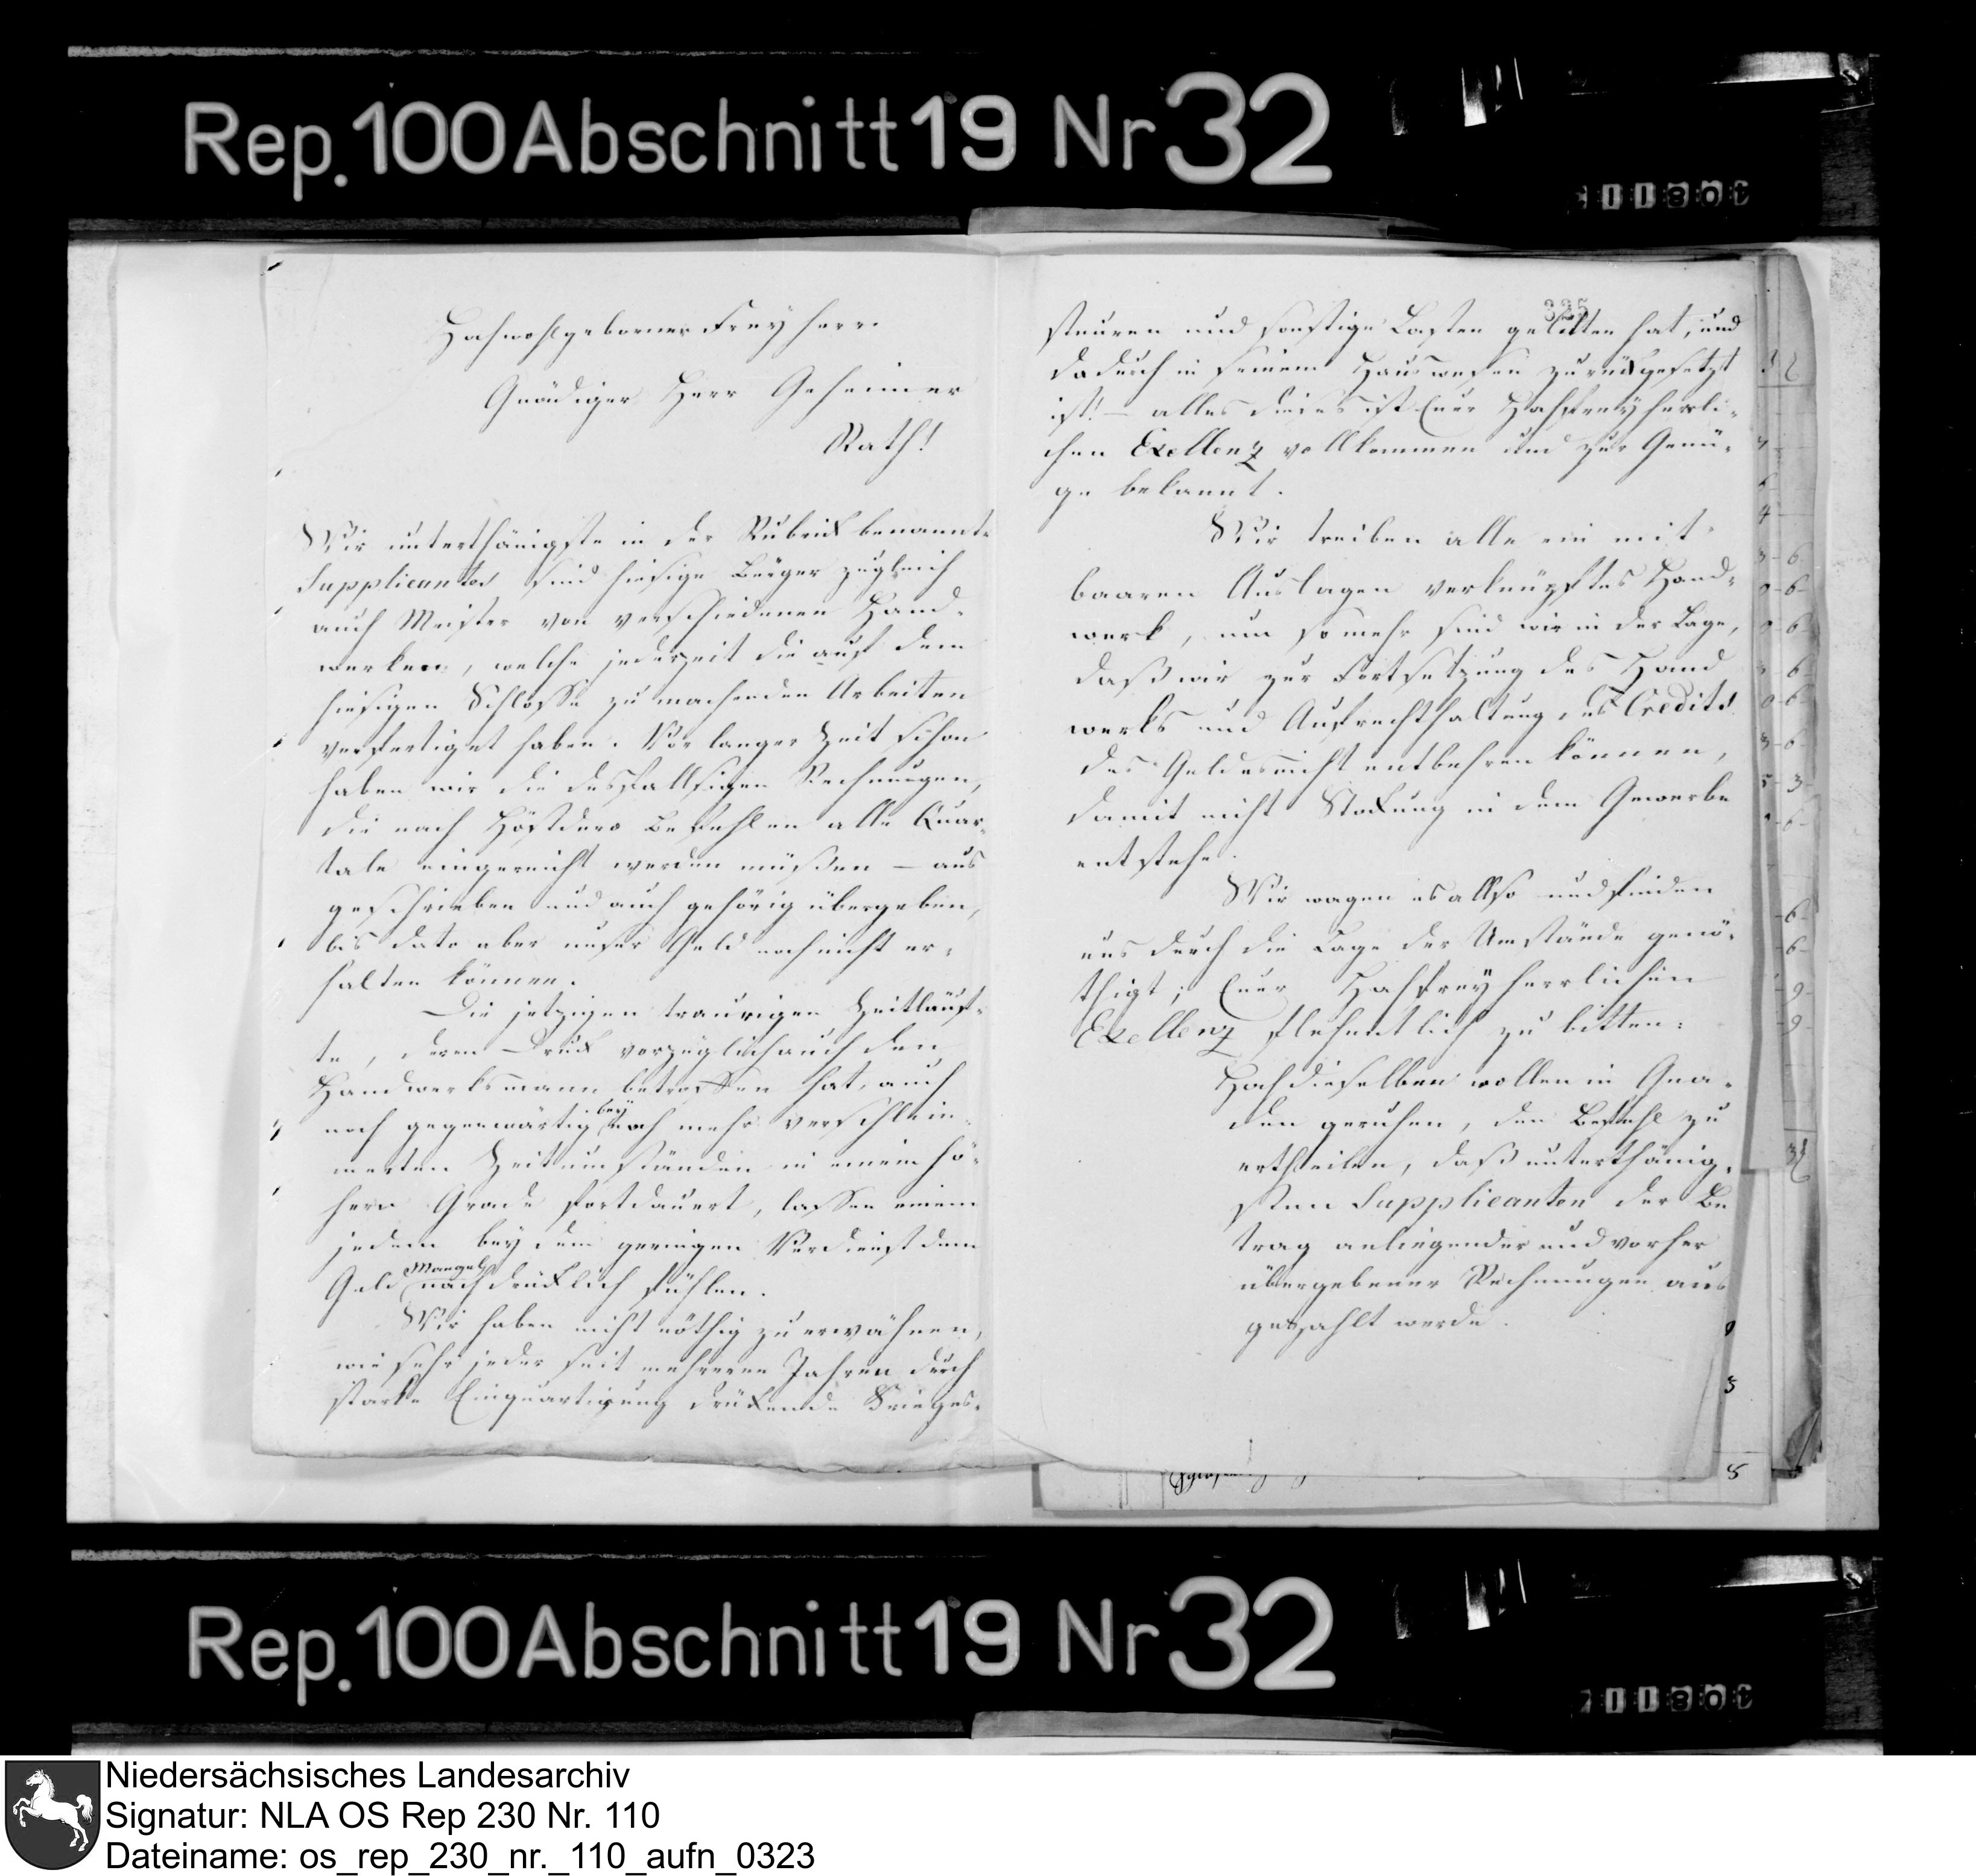 Rep. 100 Abschnitt 19 Nr 32
11801
Hochwohlgeborner Freyherr
Gnädiger Herr Geheimer
Rath!
Wir unterthänigste in der Rubrick benannte
Supplicanten sind hiesige Bürger zugleich
auch Meister von verschiedenen Hand-
werken, welche jederzeit die auf dem
hiesigen Schlosse zu machenden Arbeiten
verfertiget haben. Vor langer Zeit schon
haben wir die desfallsigen Rechnungen,
die nach Höstdero Befehlen alle Quar-
tale eingereicht werden müßen – aus
geschrieben und auch gehörig übergeben,
bis dato aber unser Geld noch nicht er-
halten können.
Die jetzigen traurigen Zeitläuf-
te, deren Druck vorzüglich auch den
Handwerksmann betroffen hat, auch
noch gegenwärtig bey noch mehr verschlein-
merten Zeitumständen in einem hö-
hern Grade fortdauert, lassen einem
jedem bey dem geringen Verdienst den
Geld Mangel nachdrücklich fühlen.
Wir haben nicht nöthig zu erwähnen,
wie sehr jeder seit mehreren Jahren durch
starke Einquartirung drückende Krieges-
325
steuren und sonstige Lasten gelitten hat, und
dadurch in seinem Hauswesen zurückgesetzt
ist! – alles dieses ist Euer Hochfreyherrli-
chen Exellenz vollkommen und zur Genü-
ge bekannt.
Wir treiben alle ein mit
baaren Auslagen verknüpftes Hand-
werk, um so mehr sind wir in der Lage,
daß wir zur Fortsetzung des Hand
werks und Aufrechthaltung des Credits
des Geldes nicht entbehren können,
damit nicht Stockung in dem Gewerbe
entstehe.
Wir wagen es allso und finden
uns durch die Lage der Umstände genö-
thigt; Euer Hochfreyherrlichen
Exellenz flehentlich zu bitten:
Hochdieselben wollen in Gna-
den geruhen, den Befehl zu
ertheilen, daß unterthänig-
sten Supplicanten der Be
trag anliegender und vorher
übergebener Rechnungen aus
gezahlt werde.
Rep. 100 Abschnitt 19 Nr 32
11801
Niedersächsisches Landesarchiv
Signatur: NLA OS Rep 230 Nr. 110
Dateiname: os_rep_230_nr._110_aufn_0323